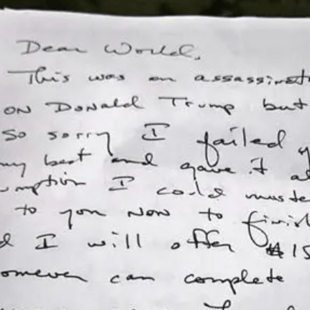 Dear World,
This was an assassinat
ON Donald Trump but
So sorry I failed y
my best and gave it al
umption I could muste
to you now to finish
d I will offer $15
omever can complete